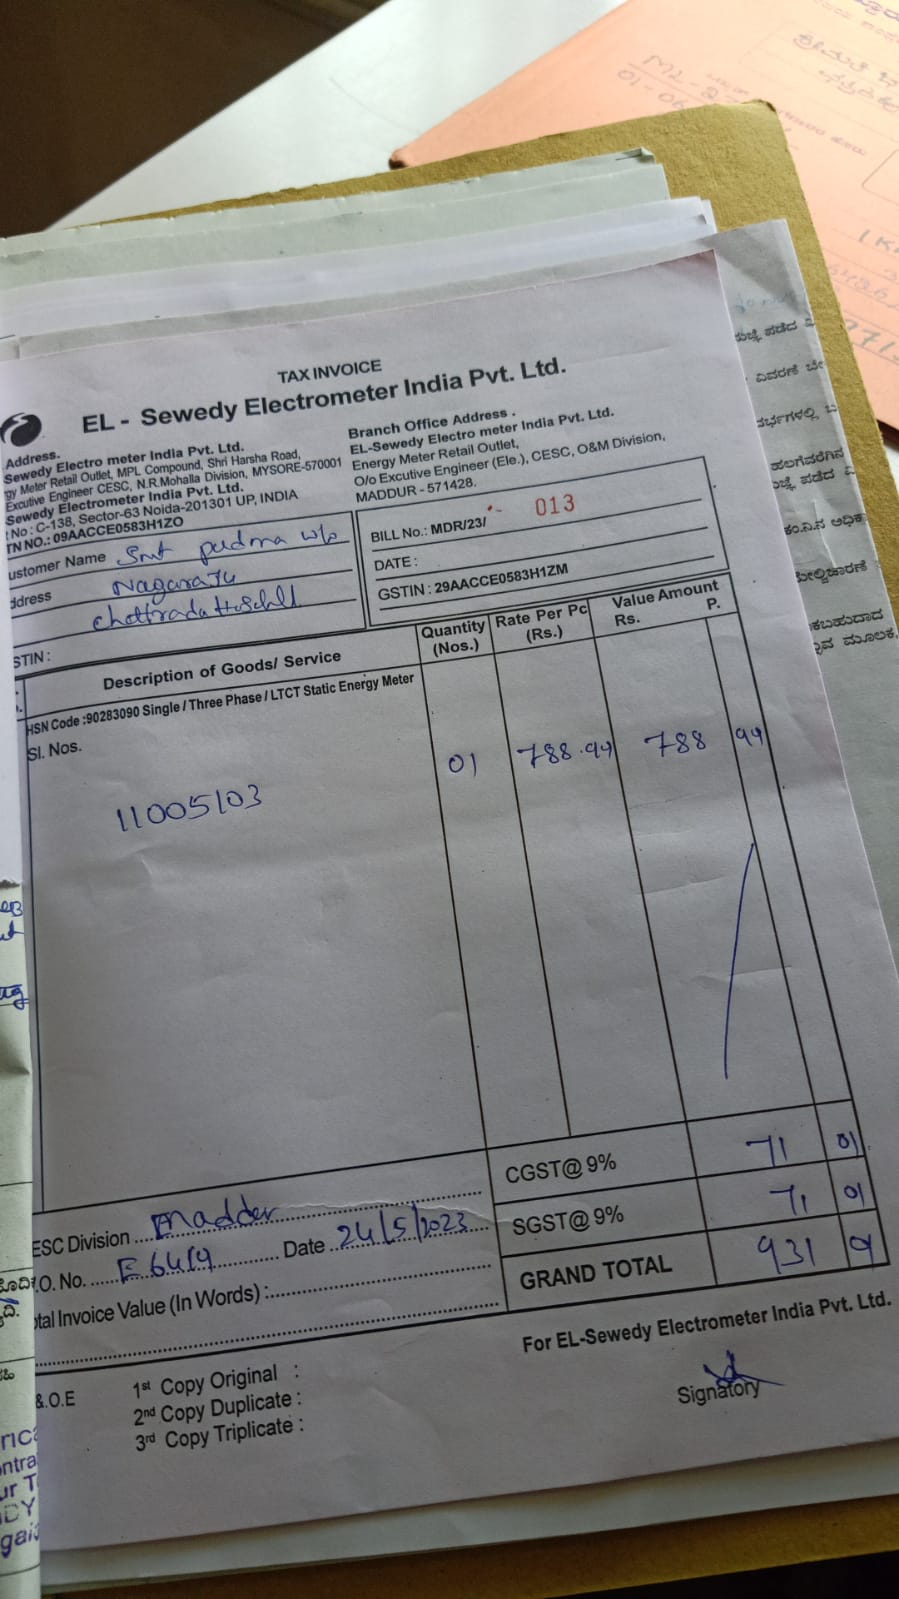 TAX INVOICE
EL - Sewedy Electrometer India Pvt. Ltd.
Address.
Sewedy Electro meter India Pvt. Ltd.
gy Meter Retail Outlet, MPL Compound, Shri Harsha Road,
Excutive Engineer CESC, N.R.Mohalla Division, MYSORE-570001
Sewedy Electrometer India Pvt. Ltd.
No : C-138, Sector-63 Noida-201301 UP, INDIA
TN NO.: 09AACCE0583H1ZO
Branch Office Address .
EL-Sewedy Electro meter India Pvt. Ltd.
Energy Meter Retail Outlet,
O/o Excutive Engineer (Ele.), CESC, O&M Division,
MADDUR - 571428.
ustomer Name Smt padma w/o
ddress Nagaraju
STIN :
BILL No.: MDR/23/ 013
DATE :
GSTIN : 29AACCE0583H1ZM
Description of Goods/ Service
Quantity (Nos.)
Rate Per Pc (Rs.)
Value Amount
Rs. P.
HSN Code :90283090 Single / Three Phase / LTCT Static Energy Meter
Sl. Nos.
11005103 01 788.99 788 99
CGST@ 9% 71 01
SGST@ 9% 71 01
GRAND TOTAL 931 01
ESC Division Maddur
.O. No. E6419 Date 24/5/2023
tal Invoice Value (In Words) :
For EL-Sewedy Electrometer India Pvt. Ltd.
&.O.E
1st Copy Original :
2nd Copy Duplicate :
3rd Copy Triplicate :
Signatory